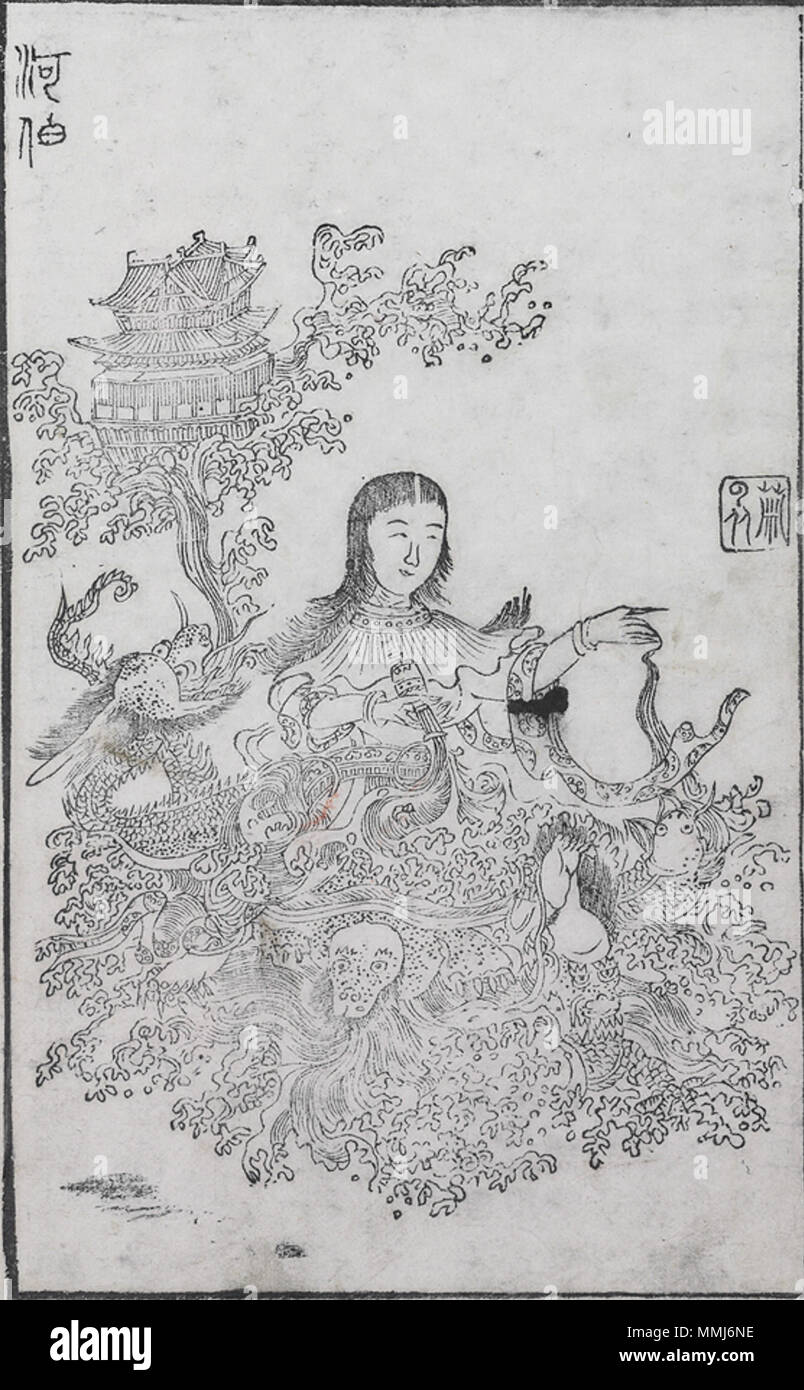 河
伯
alamy
Image ID: MMJ6NE
www.alamy.com